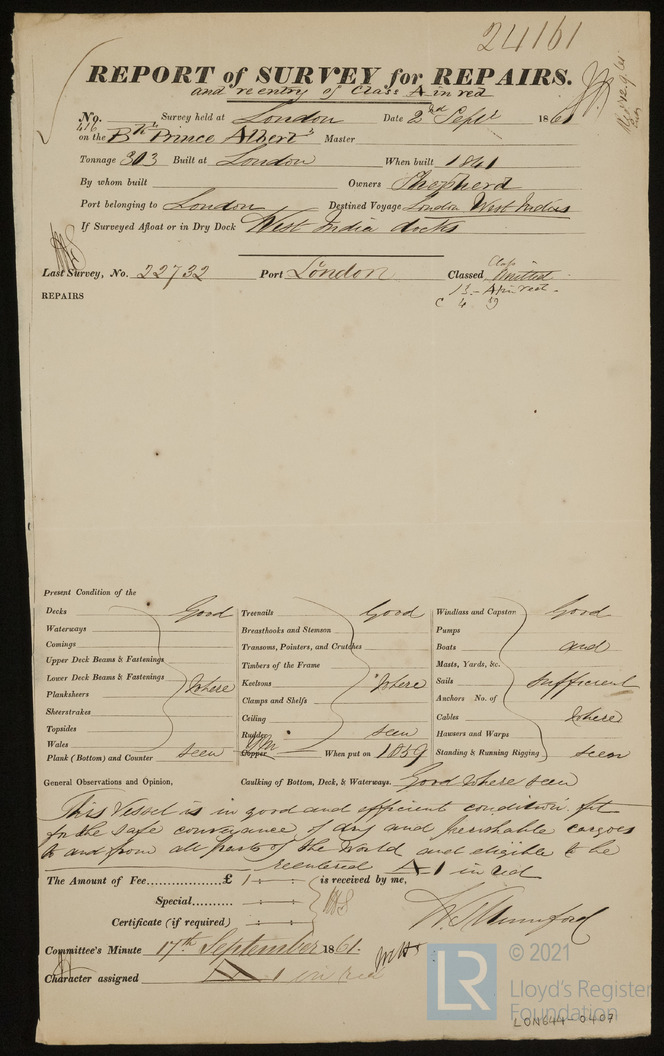 24161
REPORT of SURVEY for REPAIRS.
and reentry of Class A in red
No. 416 Survey held at London Date 2nd Septr 1861
on the Bk "Prince Albert" Master
Tonnage 303 Built at London When built 1841
By whom built Owners Shepherd
Port belonging to London Destined Voyage London West Indies
If Surveyed Afloat or in Dry Dock West India docks
Last Survey, No. 22732 Port London Classed Class omitted
A in red
REPAIRS
Present Condition of the
Decks Good Treenails Good Windlass and Capstan Good
Waterways Breasthooks and Stemson Pumps
Comings Transoms, Pointers, and Crutches Boats and
Upper Deck Beams & Fastenings Timbers of the Frame Masts, Yards, &c.
Lower Deck Beams & Fastenings where Keelsons where Sails sufficient
Planksheers Clamps and Shelfs Anchors No. of
Sheerstrakes Ceiling Cables where
Topsides Rudder seen Hawsers and Warps
Wales Copper When put on 1859 Standing & Running Rigging seen
Plank (Bottom) and Counter seen
General Observations and Opinion, Caulking of Bottom, Deck, & Waterways. Good where seen
This Vessel is in good and efficient condition fit
for the safe conveyance of dry and perishable cargoes
to and from all parts of the World and eligible to be
reentered A 1 in red
The Amount of Fee £ 1 : : is received by me,
Special : :
Certificate (if required) : :
W. S. Mumford
Committee's Minute 17th September 1861.
Character assigned A 1 in red
© 2021
LR
Lloyd's Register
Foundation
LON644-0407